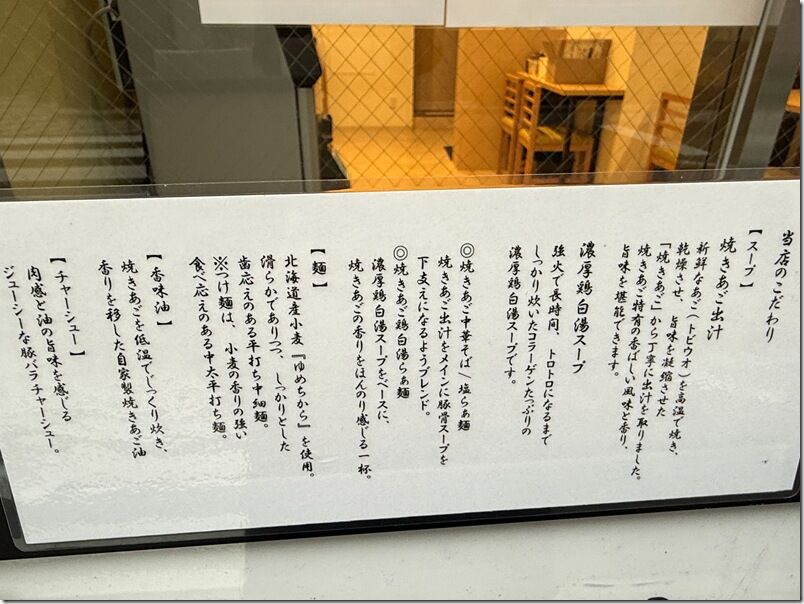 当店のこだわり
【スープ】
焼きあご出汁
新鮮なあご(トビウオ)を高温で焼き、
乾燥させ、旨味を凝縮させた
「焼きあご」から丁寧に出汁を取りました。
焼きあご特有の香ばしい風味と香り、
旨味を堪能できます。
濃厚鶏白湯スープ
強火で長時間、トロトロになるまで
しっかり炊いたコラーゲンたっぷりの
濃厚鶏白湯スープです。
◎焼きあご中華そば/塩らぁ麺
焼きあご出汁をメインに豚骨スープを
下支えになるようブレンド。
◎焼きあご鶏白湯らぁ麺
濃厚鶏白湯スープをベースに、
焼きあごの香りをほんのり感じる一杯。
【麺】
北海道産小麦『ゆめちから』を使用。
滑らかでありつつ、しっかりとした
歯応えのある平打ち中細麺。
※つけ麺は、小麦の香りの強い
食べ応えのある中太平打ち麺。
【香味油】
焼きあごを低温でじっくり炊き、
香りを移した自家製焼きあご油
【チャーシュー】
肉感と油の旨味を感じる
ジューシーな豚バラチャーシュー。